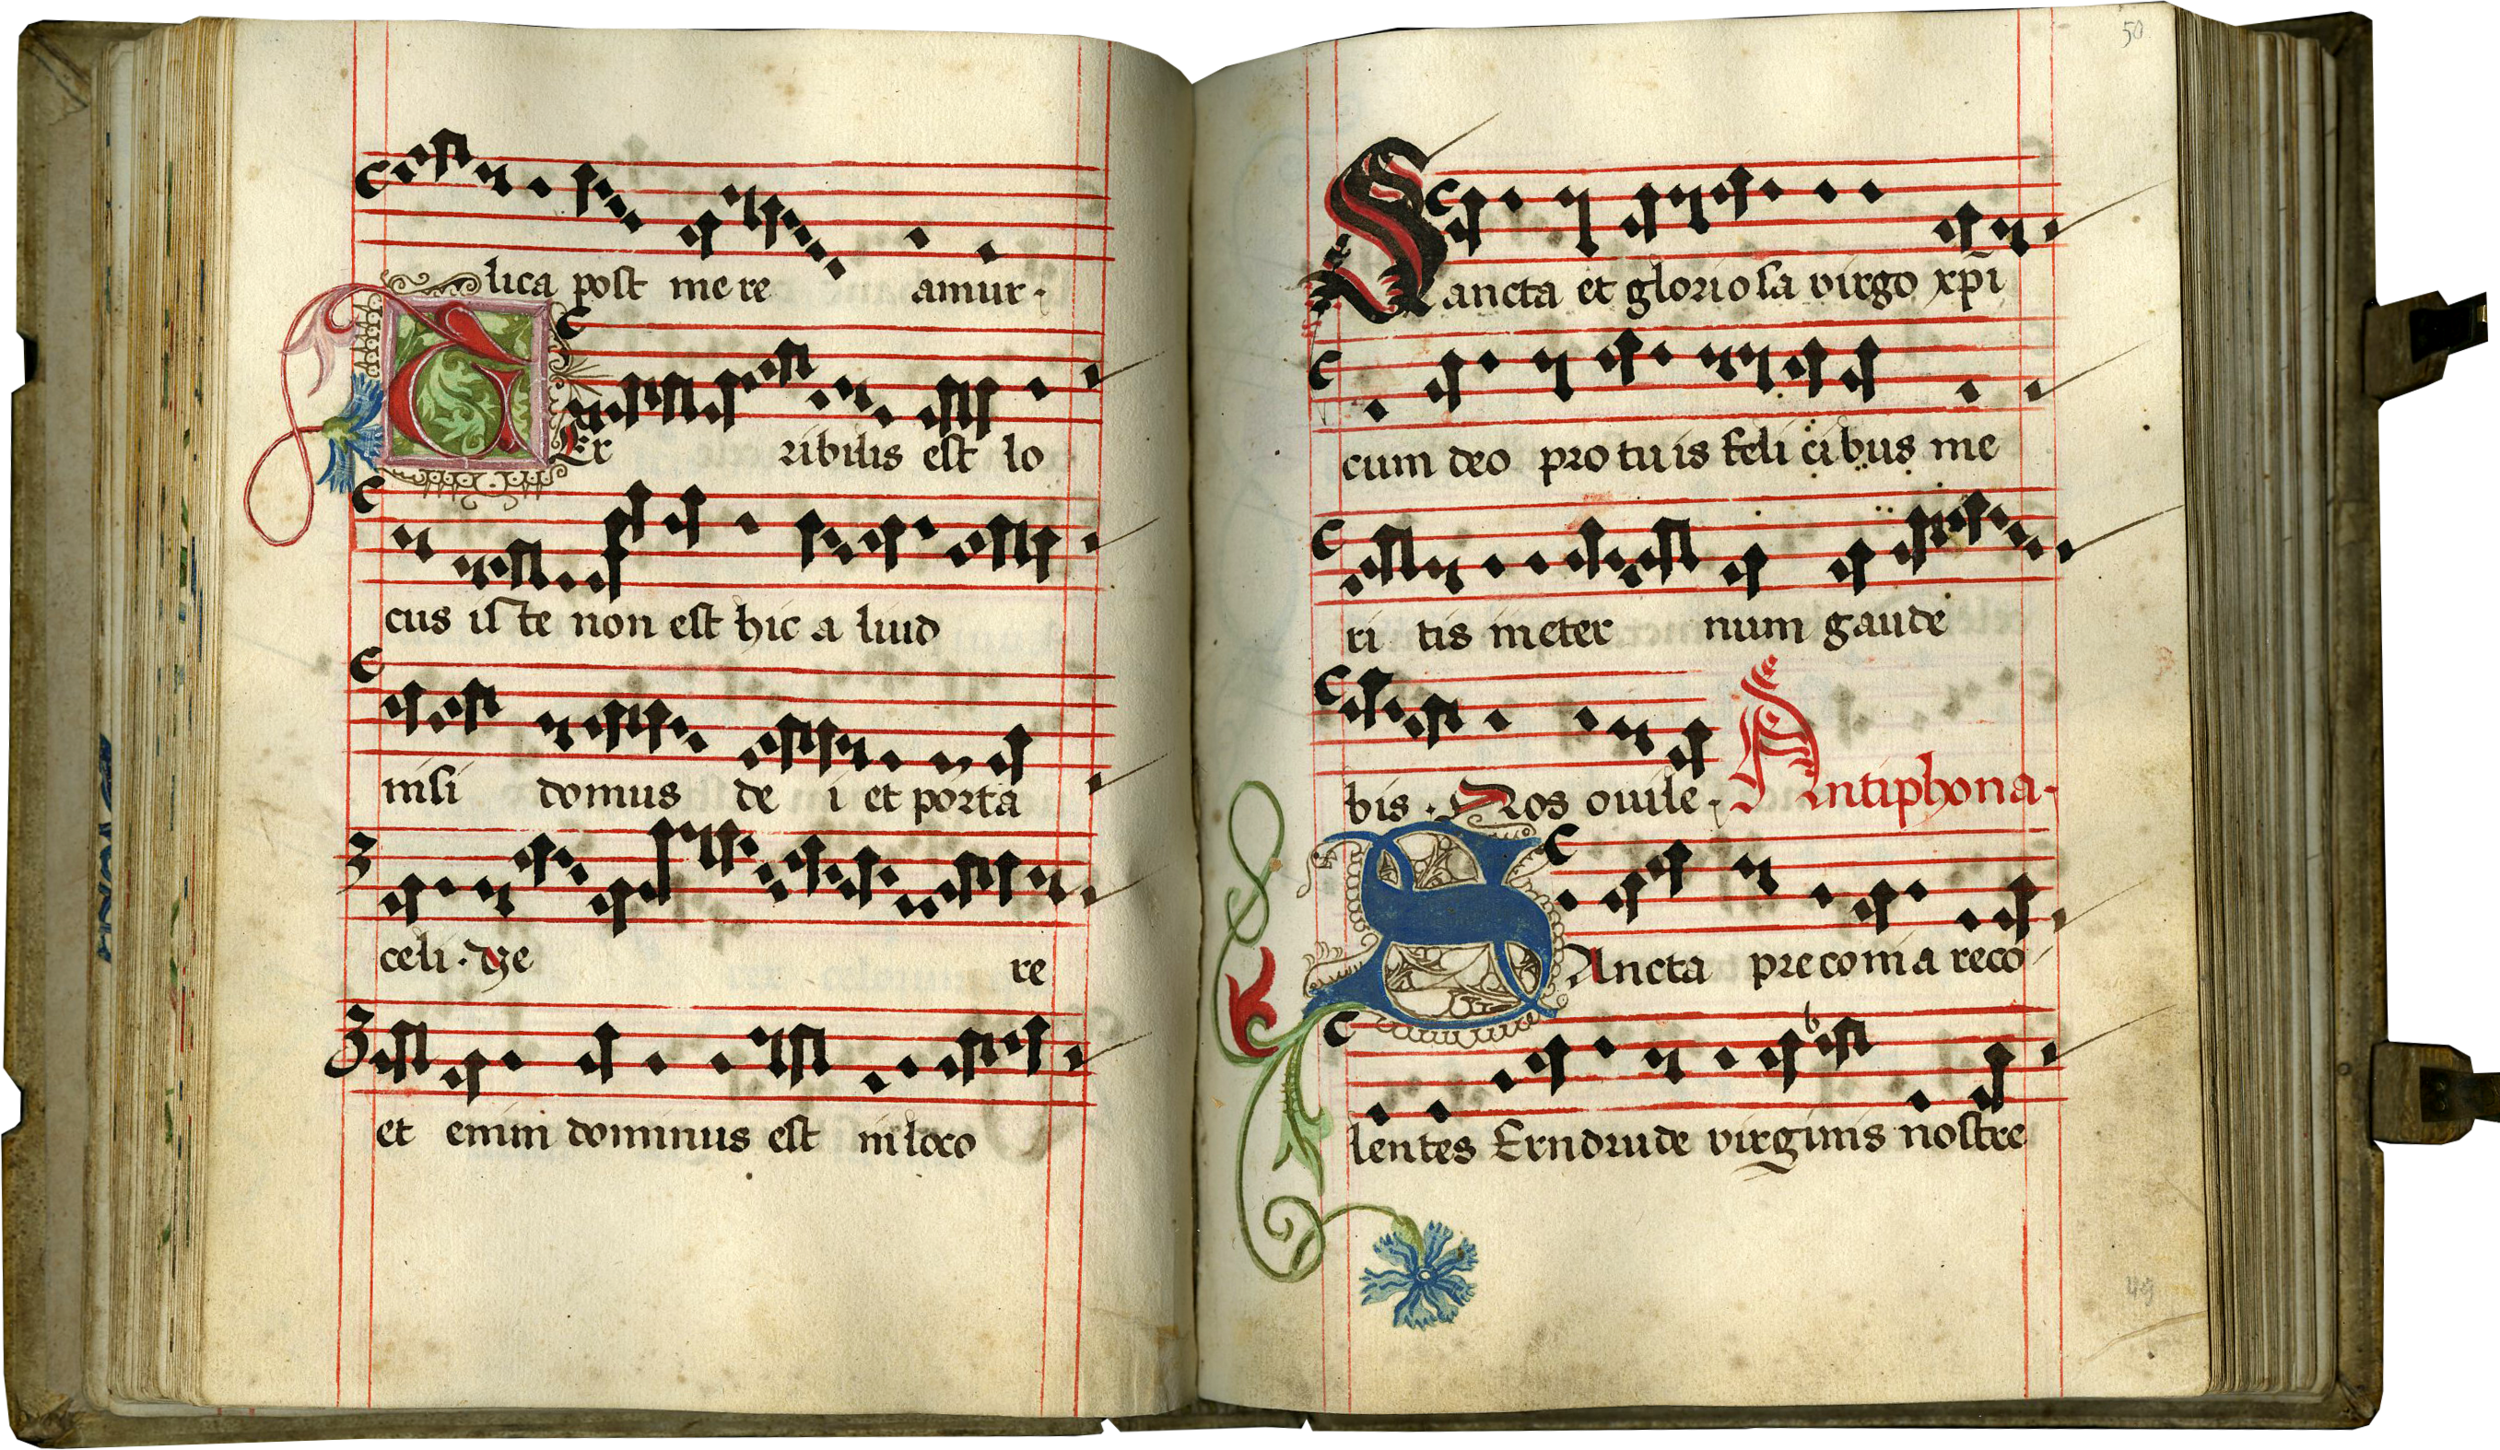 lica post mere amur.
Er ribilis est lo
cus iste non est hic a liud
nisi domus de i et porta
celi. re
et enim dominus est in loco
50
Sancta et gloriosa virgo xpi
cum deo pro tuis feli cibus me
ri tis in eter num gaude
bis. Nos ouile. Antiphona.
SAncta preconia reco
lentes Erndrude virginis nostre
49